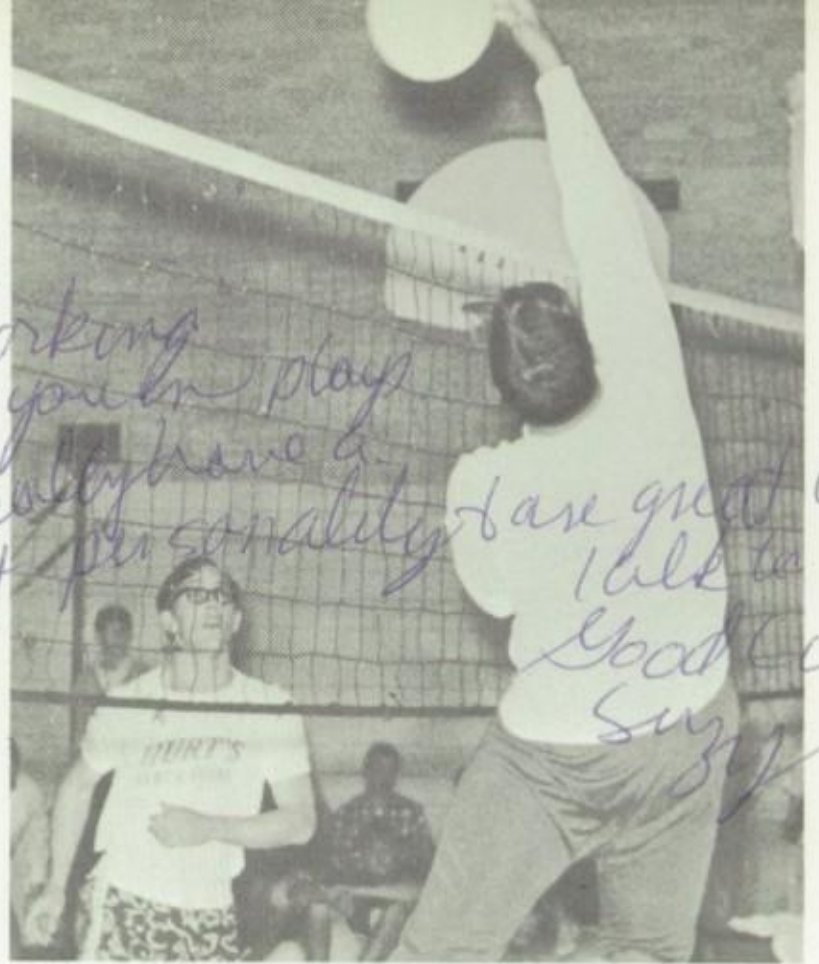 orking
you in plays
eally have a
t personality & are great
talk to
Good
Suzy
HURT'S